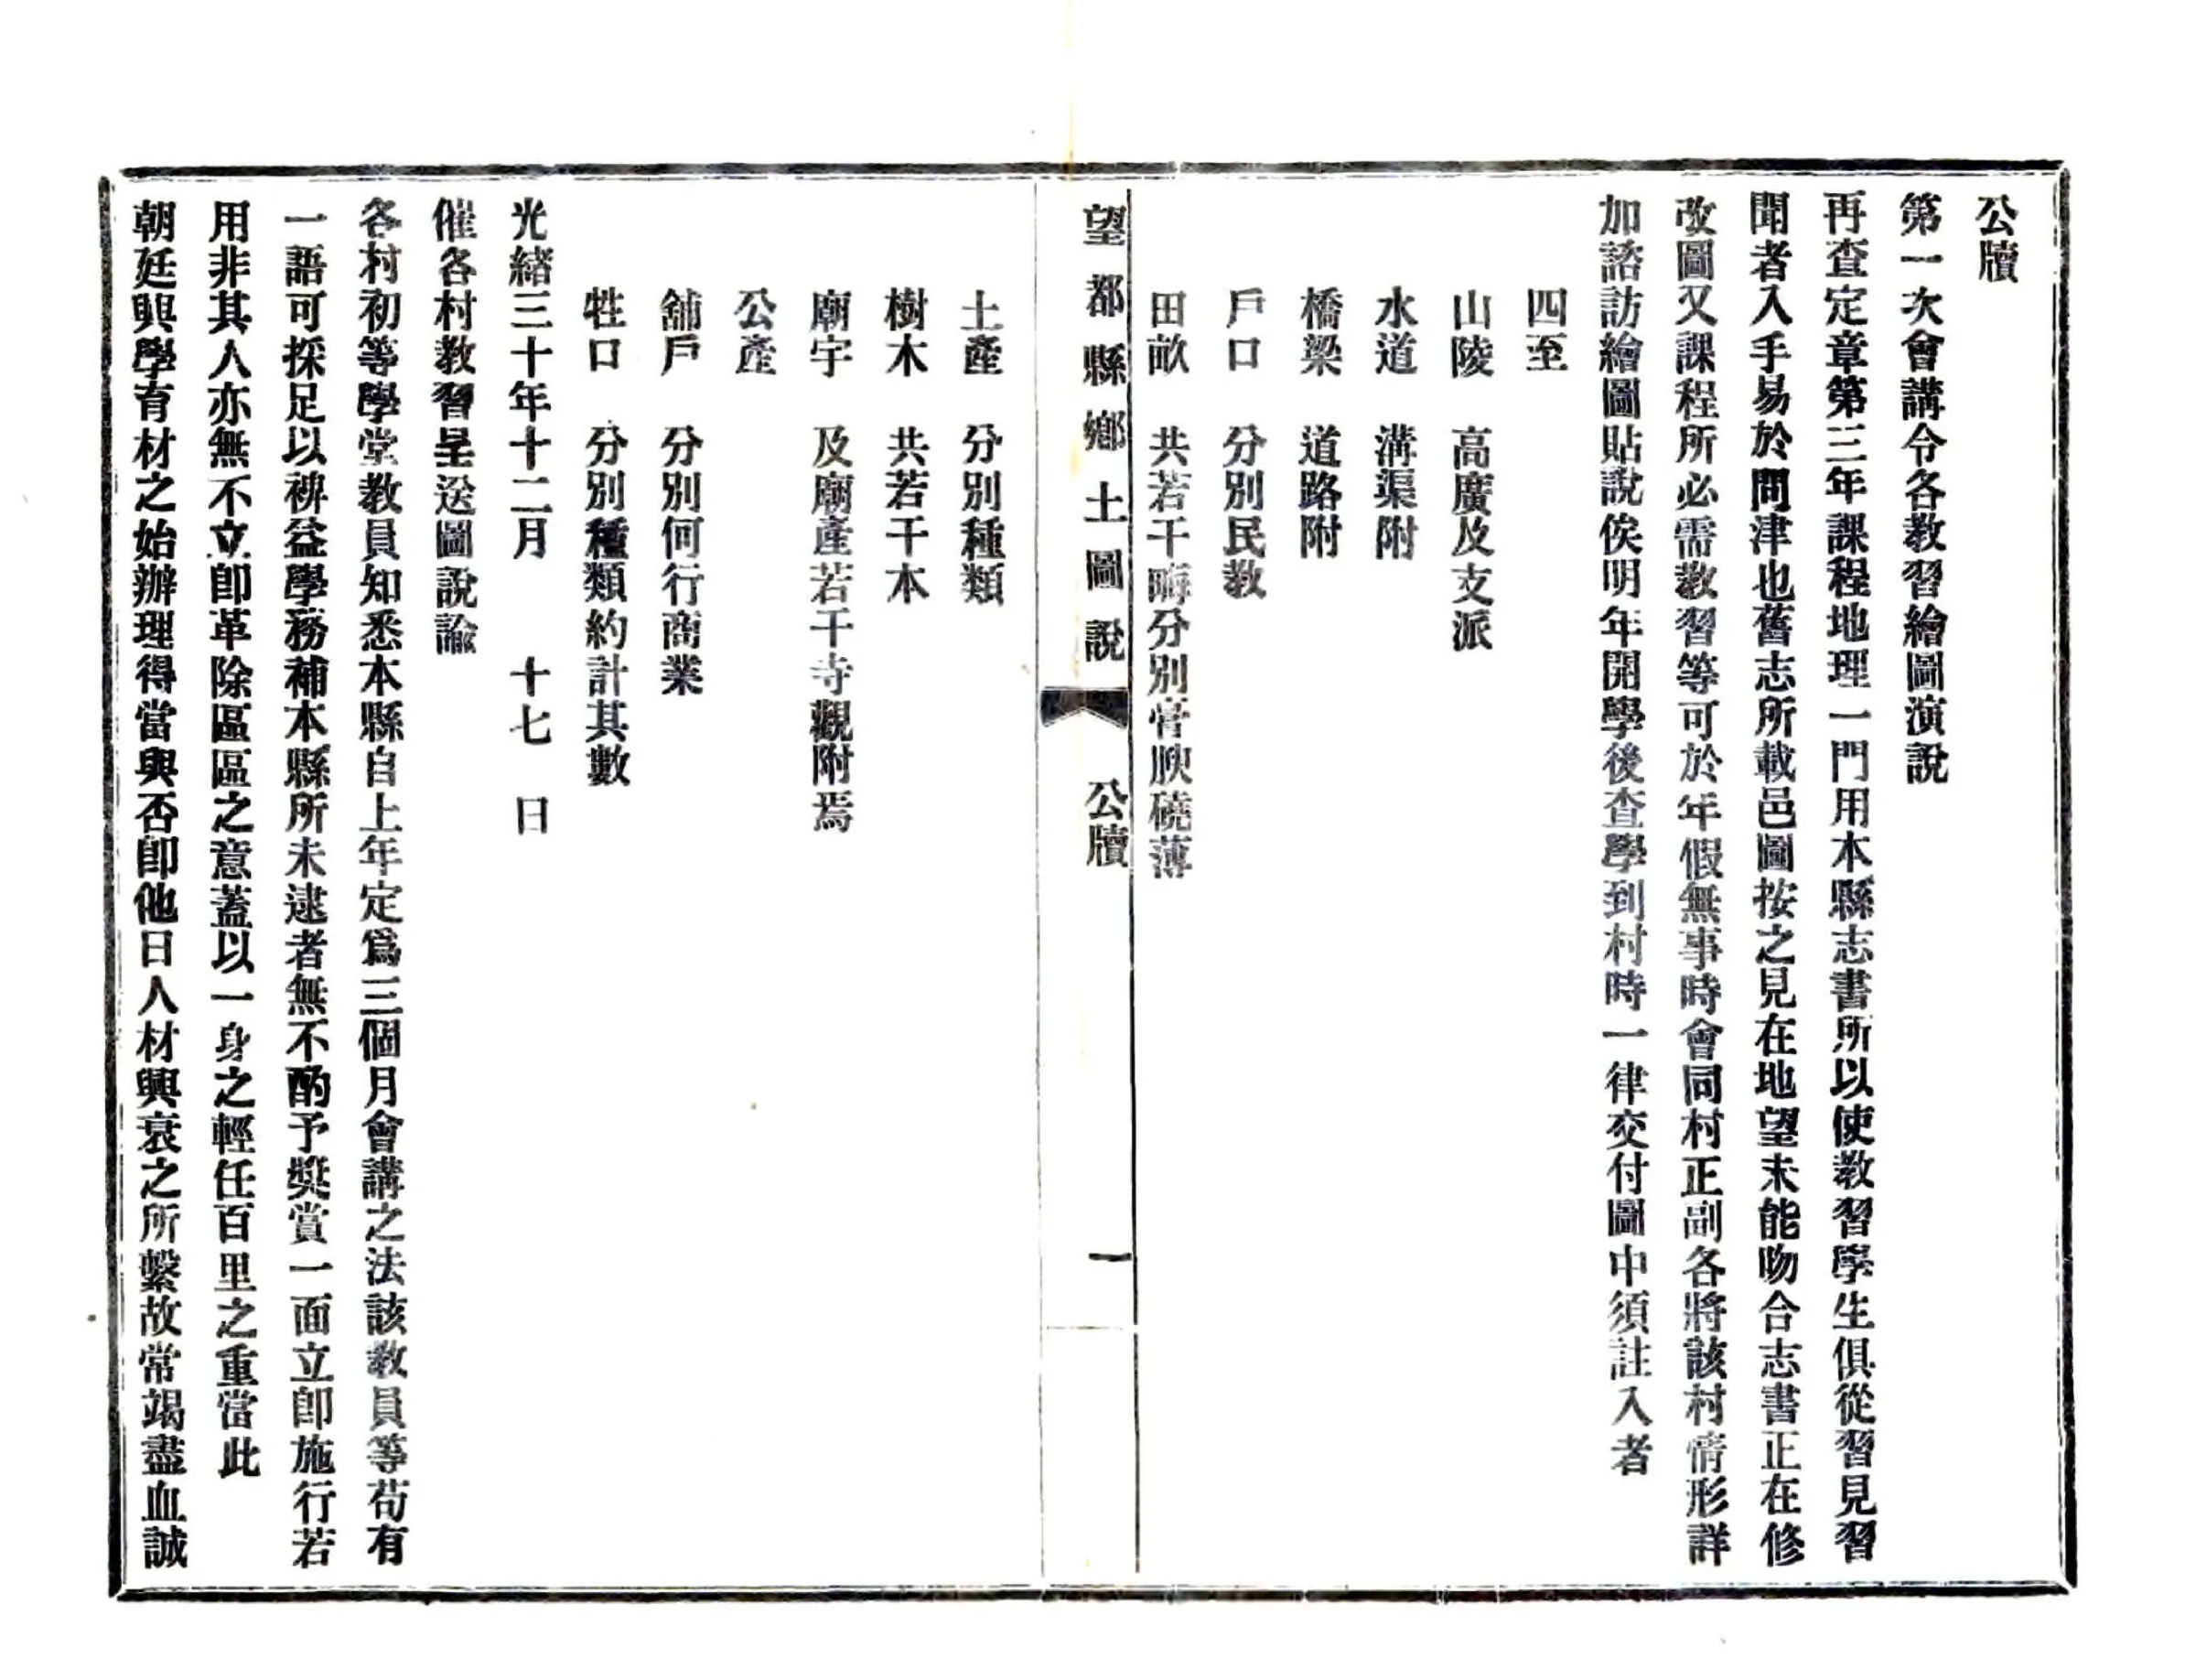 公牘
第一次會講令各教習繪圖演說
再查定章第三年課程地理一門用本縣志書所以使教習學生俱從習見習
聞者入手易於問津也舊志所載邑圖按之見在地望未能吻合志書正在修
改圖又課程所必需教習等可於年假無事時會同村正副各將該村情形詳
加諮訪繪圖貼說俟明年開學後查學到村時一律交付圖中須註入者
四至
山陵　高廣及支派
水道　溝渠附
橋梁　道路附
戶口　分別民教
田畝　共若干畮分別膏腴磽薄
望都縣鄉土圖說　公牘　一
土產　分別種類
樹木　共若干本
廟宇　及廟產若干寺觀附焉
公產
舖戶　分別何行商業
牲口　分別種類約計其數
光緒三十年十二月　十七　日
催各村教習呈送圖說諭
各村初等學堂教員知悉本縣自上年定爲三個月會講之法該教員等苟有
一語可採足以裨益學務補本縣所未逮者無不酌予獎賞一面立卽施行若
用非其人亦無不立卽革除區區之意蓋以一身之輕任百里之重當此
朝廷興學育材之始辦理得當與否卽他日人材興衰之所繫故常竭盡血誠